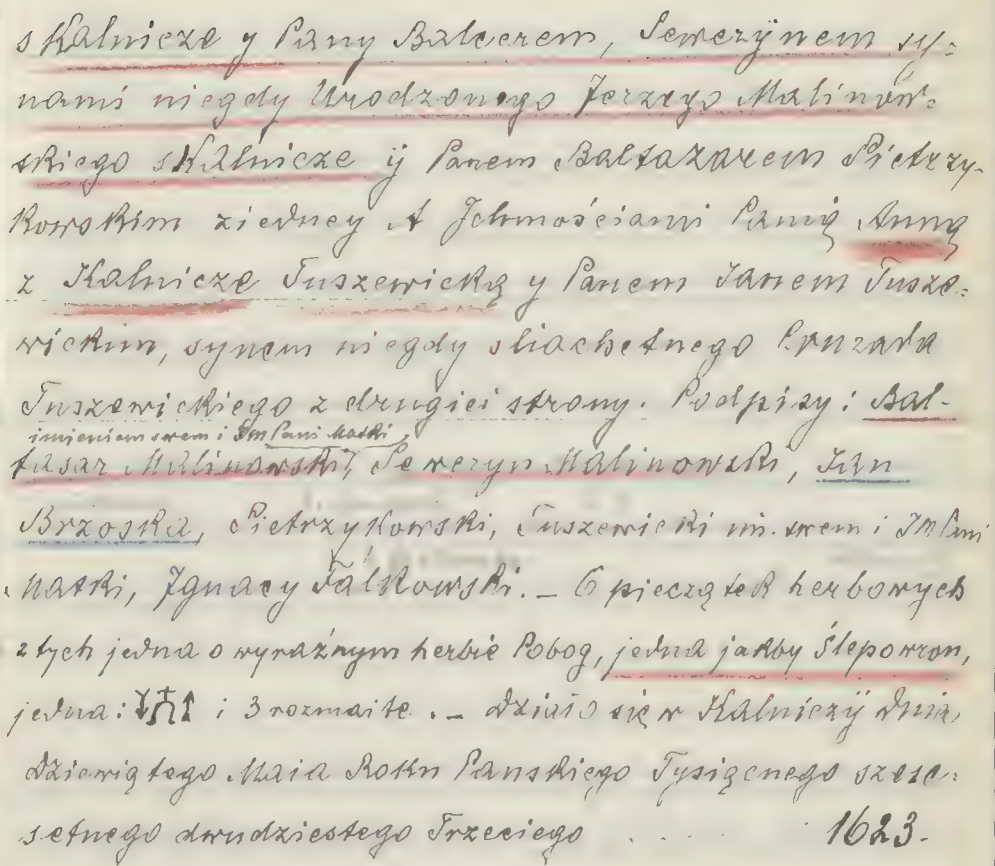 s Kalnicze y Pany Balcerem, Sewerynem sy=
nami niegdy Urodzonego Jerzego Malinow=
skiego s Kalnicze ÿ Panem Baltazarem Pietrzy-
kowskim ziedney A Jchmościami Panią Anną
z Kalnicze Tuszewicką y Panem Janem Tusze=
wickim, synem niegdy sliachetnego
Tuszewickiego z drugiei strony. Podpisy: Bal-
imieniem swem i JmPani Matki
tasar Malinowski, Seweryn Malinowski, Jan
Brzoska, Pietrzykowski, Tuszewicki im. swem i JmPani
Matki, Ignacy Falkowski. – 6 pieczątek herbowych
z tych jedna o wyraźnym herbie Pobog, jedna jakby Ślepowron,
jedna: i 3 rozmaite. – działo się w Kalniczÿ dnia
dziewiątego Maia Roku Panskiego Tysiącnego szesc=
setnego dwudziestego Trzeciego . . . . 1623.